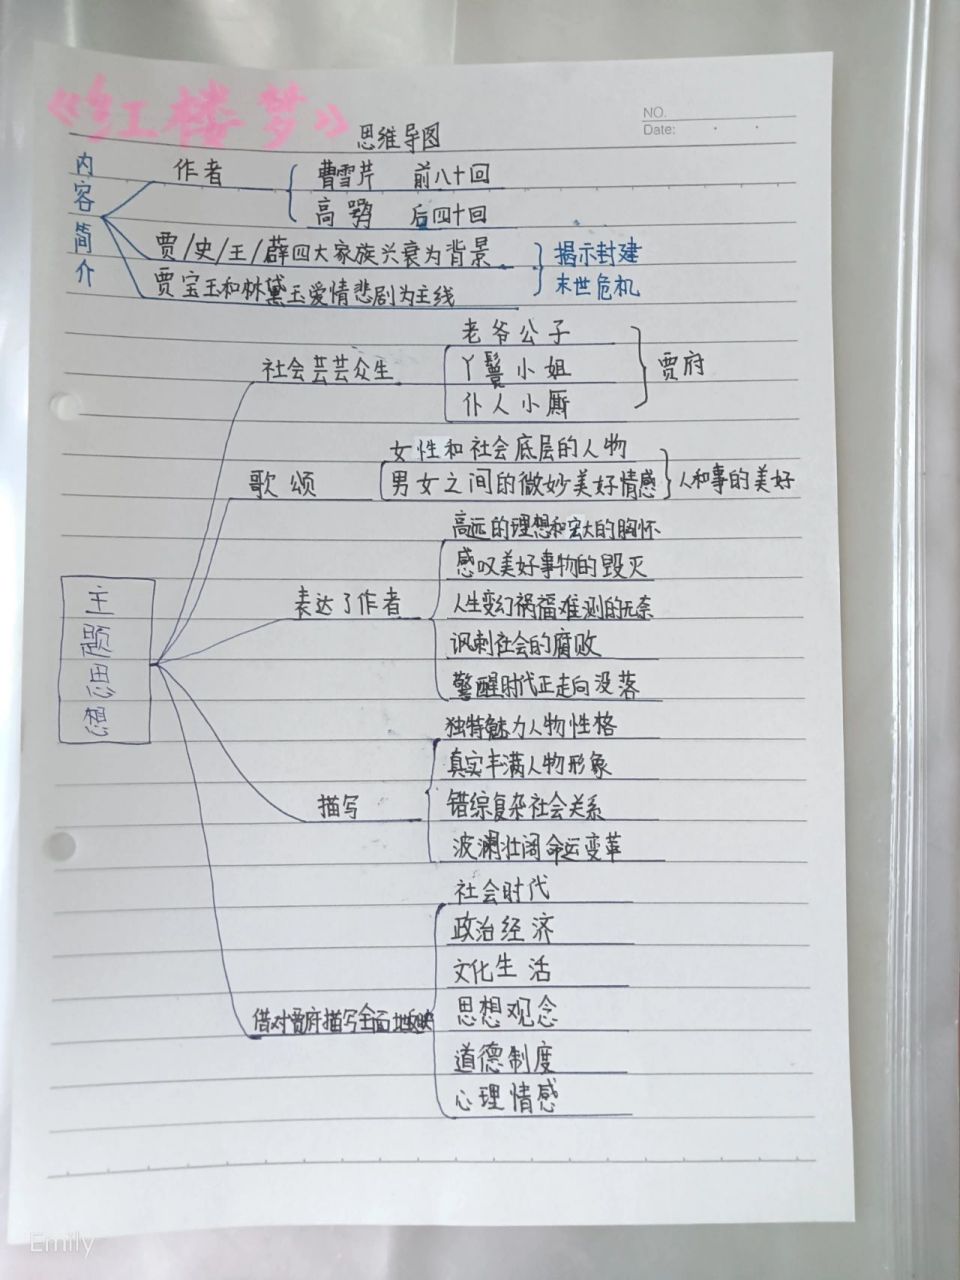 《红楼梦》
思维导图
NO.
Date:
内容简介
作者
曹雪芹 前八十回
高鹗 后四十回
贾/史/王/薛四大家族兴衰为背景
贾宝玉和林黛玉爱情悲剧为主线
揭示封建
末世危机
主题思想
社会芸芸众生
老爷公子
丫鬟小姐
仆人小厮
贾府
歌颂
女性和社会底层的人物
男女之间的微妙美好情感
人和事的美好
表达了作者
高远的理想和宏大的胸怀
感叹美好事物的毁灭
人生变幻祸福难测的无奈
讽刺社会的腐败
警醒时代正走向没落
描写
独特魅力人物性格
真实丰满人物形象
错综复杂社会关系
波澜壮阔命运变革
借对贾府描写全面地反映
社会时代
政治经济
文化生活
思想观念
道德制度
心理情感
Emily